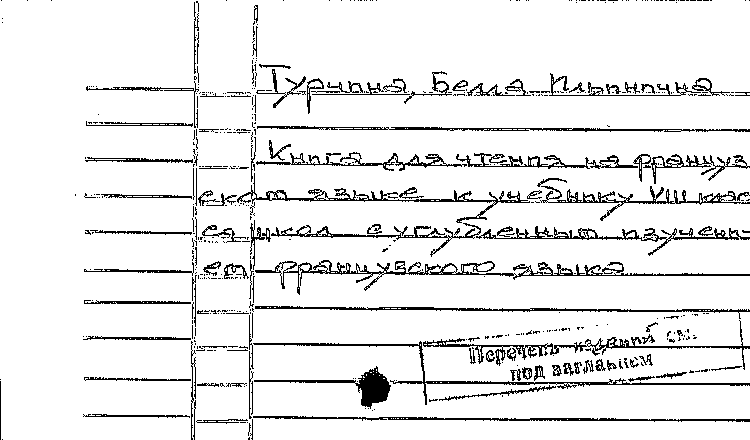 Турчина, Белла Ильинична
Книга для чтения на француз
ском языке к учебнику VIII клас
са школ с углубленным изучени-
ем французского языка
Перечень изданий см.
под заглавием